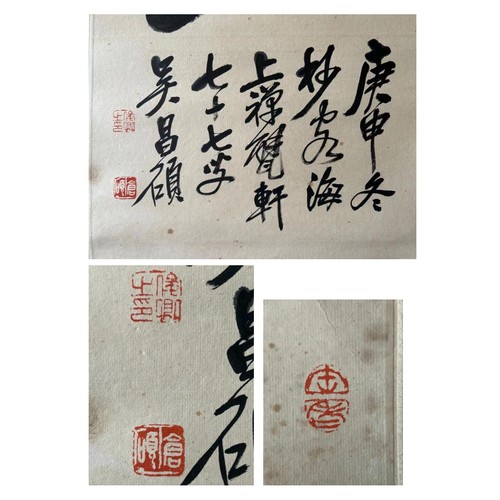 庚申冬
杪客海
上禪甓軒
七十七叟
吳昌碩
俊卿之印
倉碩
俊卿之印
倉碩